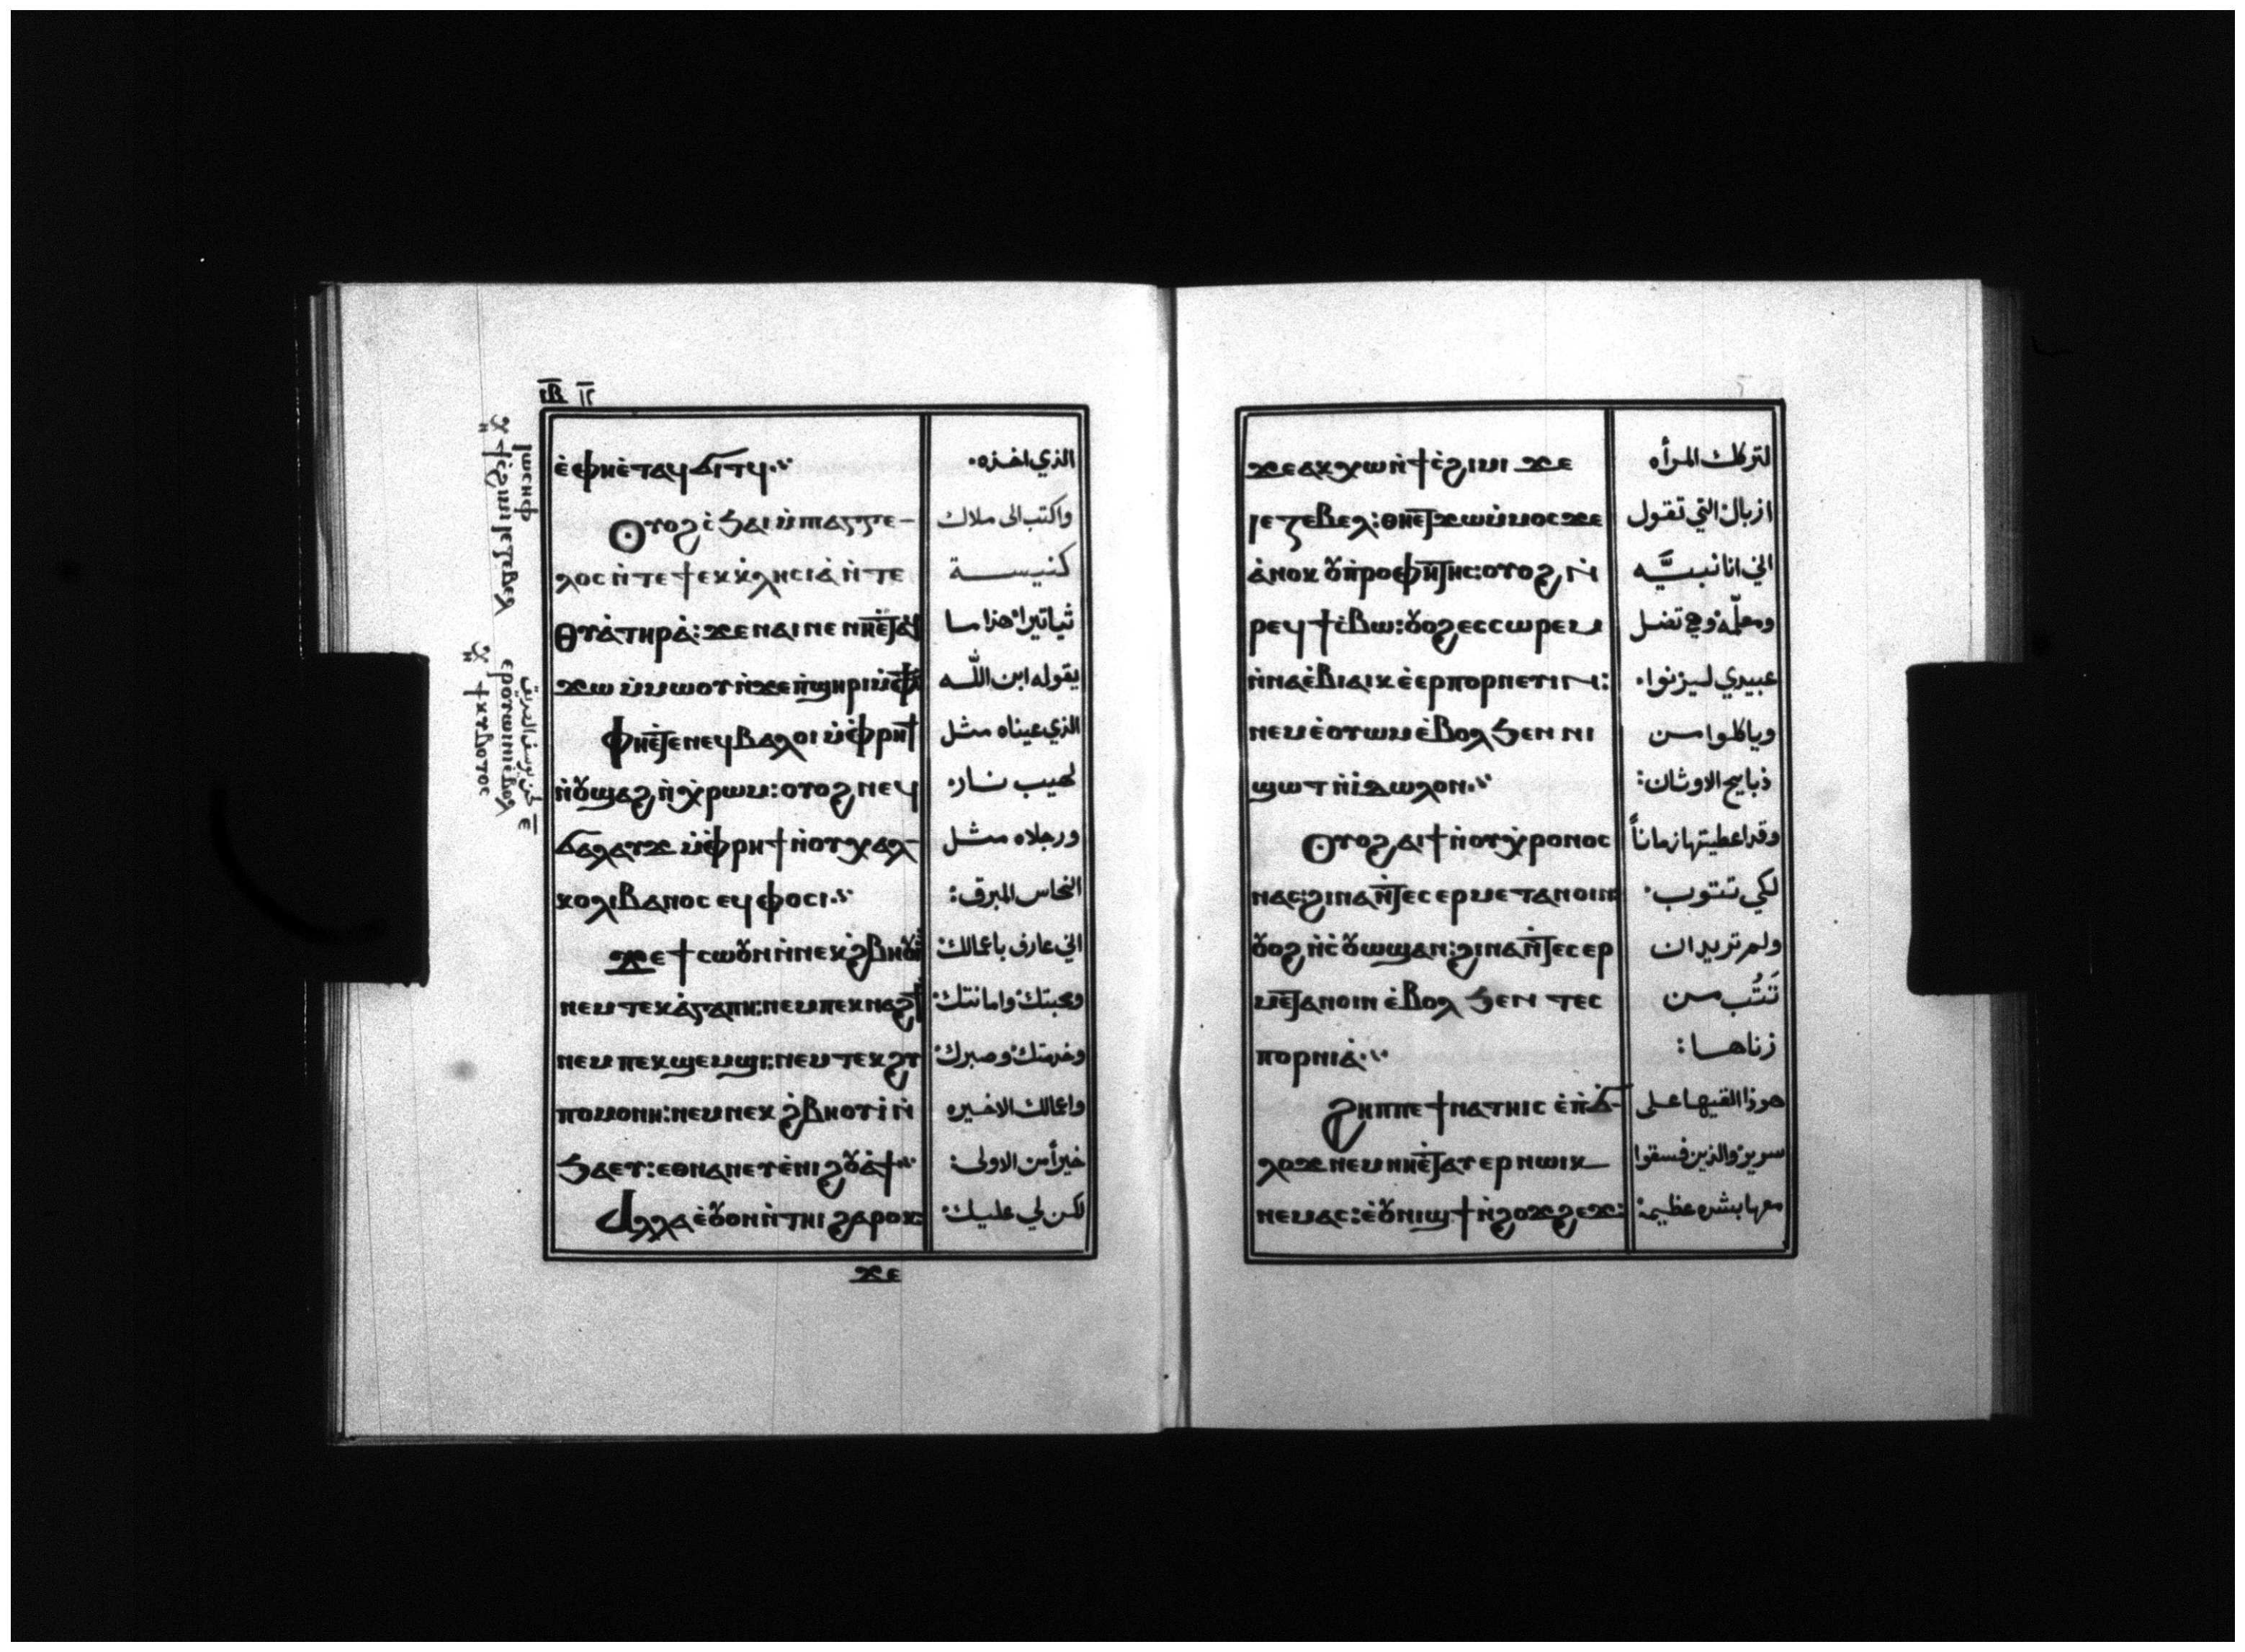 ⲓ̅ⲃ̅ ١٢
ⲉ̀ⲫⲏⲉ̀ⲧⲁϥϭⲓⲧϥ·
الذي اخذه٠
Ⲟⲩⲟϩ ⲥ̀ϧⲁⲓ ⲙ̀ⲡⲁⲅⲅⲉ-
واكتب الى ملاك
ⲗⲟⲥ ⲛ̀ⲧⲉϯⲉⲕⲕ̀ⲗⲏⲥⲓⲁ̀ ⲛ̀ⲧⲉ
كنيسة
Ⲑⲩⲁ̀ⲧⲏⲣⲁ̀: ϫⲉ ⲛⲁⲓ ⲛⲉ ⲛⲏⲉ̀ⲧⲁϥ
ثياتيرا هذا ما
ϫⲱ ⲙ̀ⲙⲱⲟⲩ ⲛ̀ϫⲉ ⲡ̀ϣⲏⲣⲓ ⲙ̀ⲫϯ
يقوله ابن الله
Ⲫⲏⲉ̀ⲧⲉ ⲛⲉϥⲃⲁⲗ ⲟⲓ ⲙ̀ⲫ̀ⲣⲏϯ
الذي عيناه مثل
ⲛ̀ⲟⲩϣⲁϩ ⲛ̀ⲭ̀ⲣⲱⲙ: ⲟⲩⲟϩ ⲛⲉϥ
لهيب نار٠
ϭⲁⲗⲁⲩϫ ⲙ̀ⲫ̀ⲣⲏϯ ⲛ̀ⲟⲩⲭⲁⲗ-
ورجلاه مثل
ⲕⲟⲗⲓⲃⲁⲛⲟⲥ ⲉϥⲫⲟⲥⲓ·
النحاس المبرق:
ϫⲉ ϯⲥⲱⲟⲩⲛ ⲛ̀ⲛⲉⲕϩ̀ⲃⲏⲟⲩⲓ̀
اني عارف باعمالك
ⲛⲉⲙ ⲧⲉⲕⲁ̀ⲅⲁⲡⲏ: ⲛⲉⲙ ⲡⲉⲕⲛⲁϩϯ
ومحبتك وامانتك
ⲛⲉⲙ ⲡⲉⲕϣⲉⲙϣⲓ: ⲛⲉⲙ ⲧⲉⲕϩⲩ
وخدمتك وصبرك
ⲡⲟⲙⲟⲛⲏ: ⲛⲉⲙ ⲛⲉⲕϩ̀ⲃⲏⲟⲩⲓ̀ ⲛ̀
واعمالك الاخيره
ϧⲁⲉⲩ: ⲉⲑⲛⲁⲛⲉⲩ ⲉ̀ⲛⲓϩⲟⲩⲁ̀ϯ·
خيراً من الاولى:
Ⲁⲗⲗⲁ ⲉ̀ⲟⲩⲟⲛ ⲛ̀ⲧⲏⲓ ϩⲁⲣⲟⲕ
لكن لي عليك
ϫⲉ
ⲓⲱⲥⲏⲫ
ϯⲥ̀ϩⲓⲙⲓ ⲓⲉⲍⲉⲃⲉⲗ
ⲉⲣⲟⲩⲱⲓⲛⲓ ⲉ̀ⲃⲟⲗ
ϯⲕⲩⲃⲟⲧⲟⲥ
ϫⲉ ⲁⲕⲭⲱ ⲛ̀ϯⲥ̀ϩⲓⲙⲓ ϫⲉ
لتركك المرأه
ⲓⲉⲍⲉⲃⲉⲗ: ⲑⲏⲉⲧϫⲱ ⲙ̀ⲙⲟⲥ ϫⲉ
ازبال التي تقول
ⲁ̀ⲛⲟⲕ ⲟⲩⲡ̀ⲣⲟⲫⲏⲧⲏⲥ: ⲟⲩⲟϩ ⲛ̀
اني انا نبيَّه
ⲣⲉϥϯⲥ̀ⲃⲱ: ⲟⲩⲟϩ ⲉⲥⲥⲱⲣⲉⲙ
ومعلّمة وهي تضل
ⲛ̀ⲛⲁⲉ̀ⲃⲓⲁⲓⲕ ⲉ̀ⲉⲣⲡⲟⲣⲛⲉⲩⲓⲛ:
عبيدي ليزنوا٠
ⲛⲉⲙ ⲉ̀ⲟⲩⲱⲙ ⲉ̀ⲃⲟⲗ ϧⲉⲛ ⲛⲓ
وياكلوا من
ϣⲱⲧ ⲛ̀ⲓⲇⲱⲗⲟⲛ·
ذبايح الاوثان:
Ⲟⲩⲟϩ ⲁⲓϯ ⲛ̀ⲟⲩⲭ̀ⲣⲟⲛⲟⲥ
وقد اعطيتها زماناً
ⲛⲁⲥ: ϩⲓⲛⲁ ⲛ̀ⲧⲉⲥⲉⲣⲙⲉⲧⲁⲛⲟⲓⲛ
لكي تتوب٠
ⲟⲩⲟϩ ⲛ̀ⲥ̀ⲟⲩⲱϣ ⲁⲛ: ϩⲓⲛⲁ ⲛ̀ⲧⲉⲥⲉⲣ
ولم تريد ان
ⲙⲉⲧⲁⲛⲟⲓⲛ ⲉ̀ⲃⲟⲗ ϧⲉⲛ ⲧⲉⲥ
تَتُب من
ⲡⲟⲣⲛⲓⲁ̀·
زناها:
Ϩⲏⲡⲡⲉ ϯⲛⲁⲧⲏⲓⲥ ⲉ̀ⲡ̀ϭ-
هوذا القيها على
ⲗⲟϫ ⲛⲉⲙ ⲛⲏⲉ̀ⲧⲁⲩⲉⲣⲛⲱⲓⲕ
سرير والذين فسقوا
ⲛⲉⲙⲁⲥ: ⲉ̀ⲟⲩⲛⲓϣϯ ⲛ̀ϩⲟϫϩⲉϫ:
معها بشده عظيمة